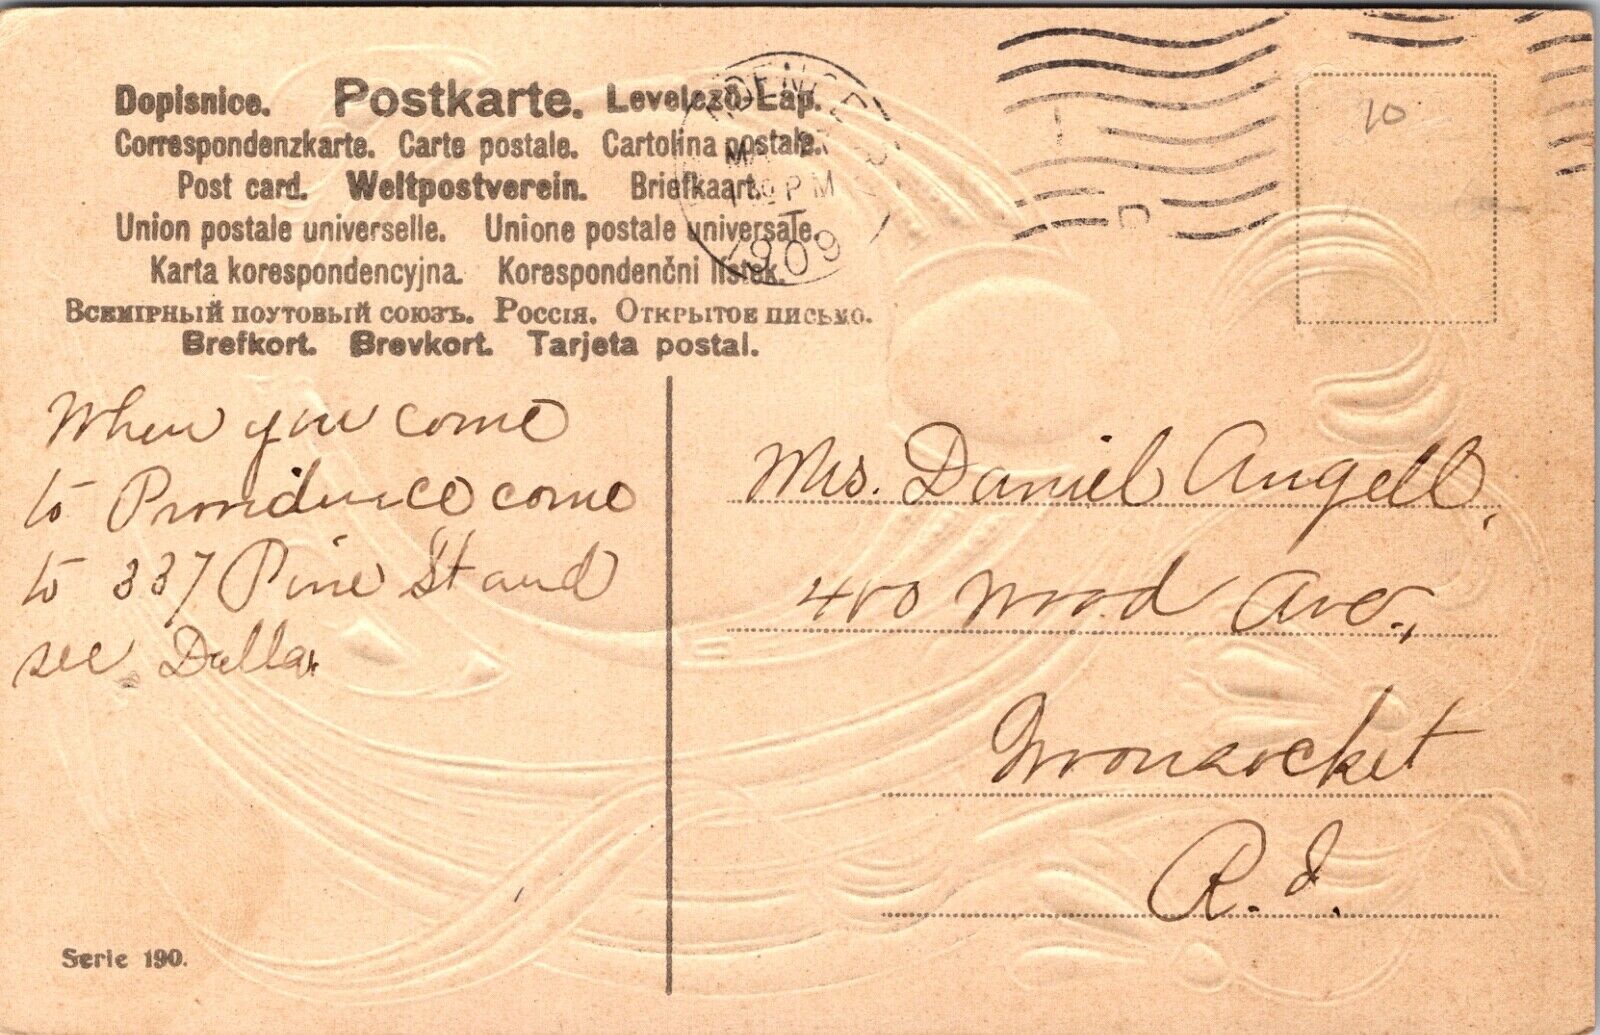 Dopisnice. Postkarte. Levelező-Lap.
Correspondenzkarte. Carte postale. Cartolina postale.
Post card. Weltpostverein. Briefkaart.
Union postale universelle. Unione postale universale.
Karta korespondencyjna. Korespondenční listek.
Всемірный поутовый союзъ. Россія. Открытое письмо.
Brefkort. Brevkort. Tarjeta postal.
PM
1909
10
When you come
to Providence come
to 337 Pine St and
see Della
Mrs. Daniel Angell,
400 Wood Ave.,
Woonsocket
R.I.
Serie 190.